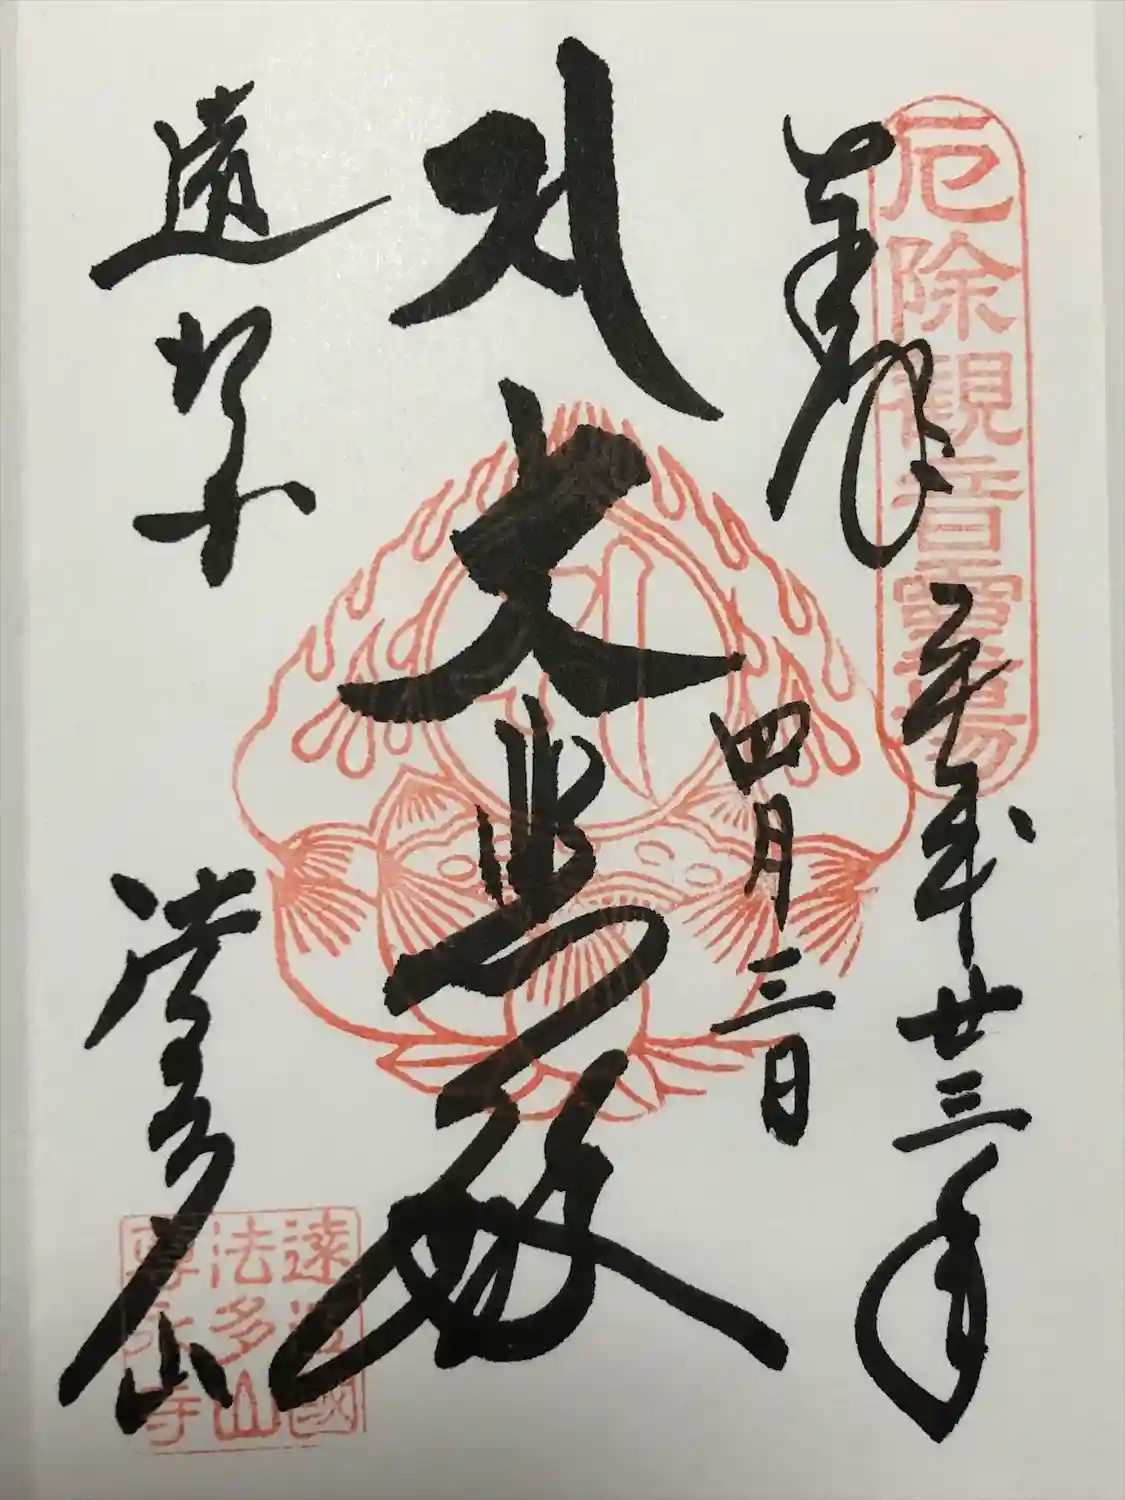 厄除観音霊場
奉拝
平成廿三年
四月三日
大悲殿
遠州
法多山
遠江國
法多山
尊永寺